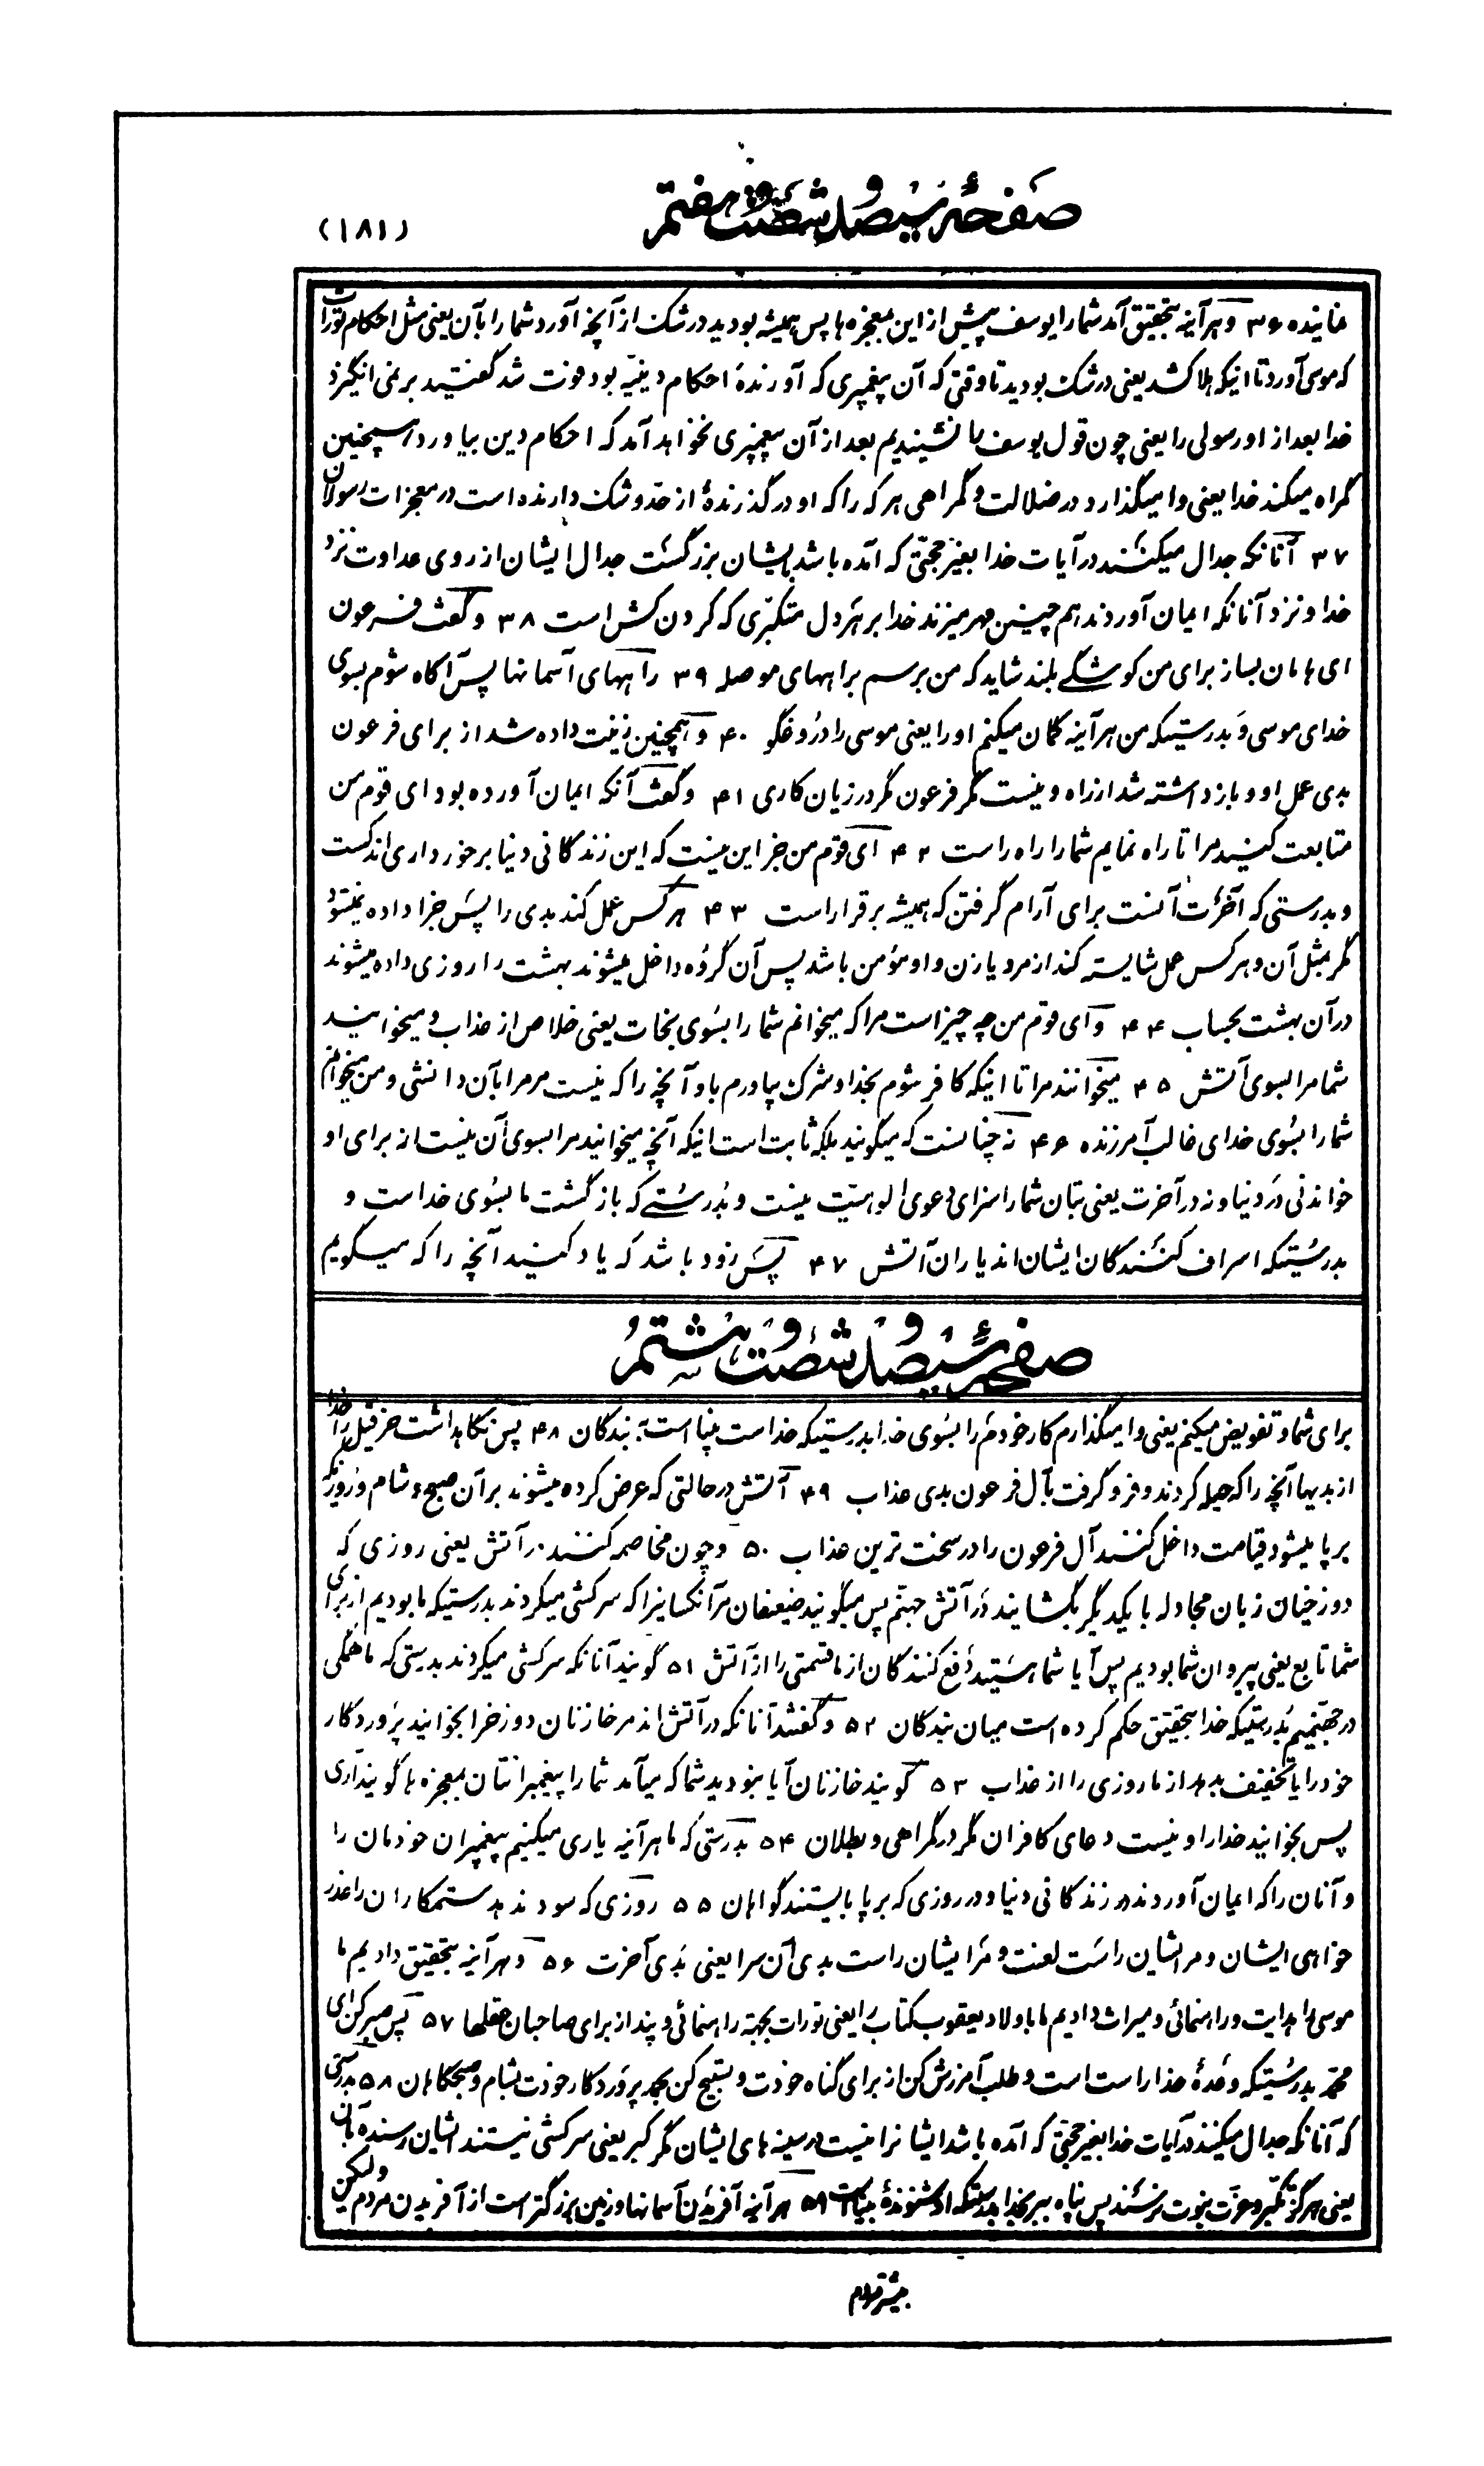 صفحهٔ سیصد و شصت و هفتم
(۱۸۱)
نماینده ۳۶ و هرآینه بتحقیق آمد شما را یوسف پیش از این بمعجزه ها پس همیشه بودید در شک از آنچه آورد شما را بآن یعنی مثل احکام تورات
که موسی آورد تا اینکه هلاک شد یعنی در شک بودید تا وقتی که آن پیغمبری که آورندهٔ احکام دینیّه بود فوت شد گفتید بر نمی انگیزد
خدا بعد از او رسولی را یعنی چون قول یوسف را نشنیدیم بعد از آن پیغمبری نخواهد آمد که احکام دین بیاورد همچنین
گمراه میکند خدا یعنی وا میگذارد در ضلالت و گمراهی هر که را که او در گذرندهٔ از حدّ و شک دارنده است در معجزات رسولان
۳۷ آنانکه جدال میکنند در آیات خدا بغیر حجتی که آمده باشد بایشان بزرگست جدال ایشان از روی عداوت نزد
خدا و نزد آنانکه ایمان آوردند هم چنین مهر میزند خدا بر هر دل متکبّری که گردن کش است ۳۸ و گفت فرعون
ای هامان بساز برای من کوشکی بلند شاید که من برسم براههای موصله ۳۹ راههای آسمانها پس آگاه شوم بسوی
خدای موسی و بدرستیکه من هرآینه گمان میکنم او را یعنی موسی را دروغگو ۴۰ و همچنین زینت داده شد از برای فرعون
بدی عمل او و بازداشته شد از راه و نیست مکر فرعون مگر در زیان کاری ۴۱ و گفت آنکه ایمان آورده بود ای قوم من
متابعت کنید مرا تا راه نمایم شما را راه راست ۴۲ ای قوم من جز این نیست که این زندگانی دنیا برخورداری اندکست
و بدرستی که آخرت آنست برای آرام گرفتن که همیشه برقرار است ۴۳ هرکس عمل کند بدی را پس جزا داده نمیشود
مگر بمثل آن و هر کس عمل شایسته کند از مرد یا زن و او مؤمن باشد پس آن گروه داخل میشوند بهشت را روزی داده میشوند
در آن بهشت بحساب ۴۴ و ای قوم من چه چیز است مرا که میخوانم شما را بسوی نجات یعنی خلاص از عذاب و میخوانید
شما مرا بسوی آتش ۴۵ میخوانند مرا تا اینکه کافر شوم بخدا و شرک بیاورم باو آنچه را که نیست مر مرا بآن دانشی و من میخوانم
شما را بسوی خدای غالب آمرزنده ۴۶ نه چنانست که میگویند بلکه ثابت است اینکه آنچه میخوانید مرا بسوی آن نیست از برای او
خواندنی در دنیا و نه در آخرت یعنی بتان شما را سزای دعوی الوهیّت نیست و بدرستی که بازگشت ما بسوی خداست و
بدرستیکه اسراف کنندگان ایشان اند یاران آتش ۴۷ پس زود باشد که یاد کنید آنچه را که میگویم
صفحهٔ سیصد و شصت و هشتم
برای شما و تفویض میکنم یعنی وا میگذارم کار خودم را بسوی خدا بدرستیکه خداست بینا است به بندگان ۴۸ پس نگاهداشت حزقیل را خدا
از بدیها آنچه را که حیله کردند و فرو گرفت بآل فرعون بدی عذاب ۴۹ آتش در حالتی که عرض کرده میشوند بر آن صبح و شام و روزیکه
برپا میشود قیامت داخل کنند آل فرعون را در سخت ترین عذاب ۵۰ و چون مخاصمه کنند در آتش یعنی روزی که
دوزخیان زبان مجادله با یکدیگر بگشایند در آتش جهنم پس میگویند ضعیفان مر آنکسانیرا که سرکشی میکردند بدرستیکه ما بودیم از برای
شما تابع یعنی پیروان شما بودیم پس آیا شما هستید دفع کنندگان از ما قسمتی را از آتش ۵۱ گویند آنانکه سرکشی میکردند بدرستی که ما همگی
در جهنّمیم بدرستیکه خدا بتحقیق حکم کرده است میان بندگان ۵۲ و گفتند آنانکه در آتش اند مر خازنان دوزخ را بخوانید پروردگار
خود را یا تخفیف بدهد از ما روزی را از عذاب ۵۳ گویند خازنان آیا نبودید شما که میآمد شما را پیغمبرانتان بمعجزه ها گویند آری
پس بخوانید خدا را و نیست دعای کافران مگر در گمراهی و بطلان ۵۴ بدرستی که ما هرآینه یاری میکنیم پیغمبران خودمان را
و آنان را که ایمان آوردند در زندگانی دنیا و در روزی که برپا بایستند گواهان ۵۵ روزی که سود ندهد ستمکاران را عذر
خواهی ایشان و مر ایشان راست لعنت و مر ایشان راست بدی آن سرا یعنی بدی آخرت ۵۶ و هرآینه بتحقیق دادیم ما
موسی را هدایت و راهنمائی و میراث دادیم ما باولاد یعقوب کتاب را یعنی تورات بجهة راهنمائی و پند از برای صاحبان عقلها ۵۷ پس صبر کن ای
محمّد بدرستیکه وعدهٔ خدا راست است و طلب آمرزش کن از برای گناه خودت و تسبیح کن بحمد پروردگار خودت بشام و صبحگاهان ۵۸ بدرستی
که آنانکه جدال میکنند در آیات خدا بغیر حجتی که آمده باشد ایشانرا نیست در سینه های ایشان مگر کبر یعنی سرکشی نیستند ایشان رسنده بآن
یعنی هرگز بتکبّر و عزّت نبوت نرسند پس پناه ببر بخدا بدرستیکه او شنوندهٔ بیناست ۵۹ هرآینه آفریدن آسمانها و زمین بزرگتر است از آفریدن مردم ولیکن
بیشتر مردم